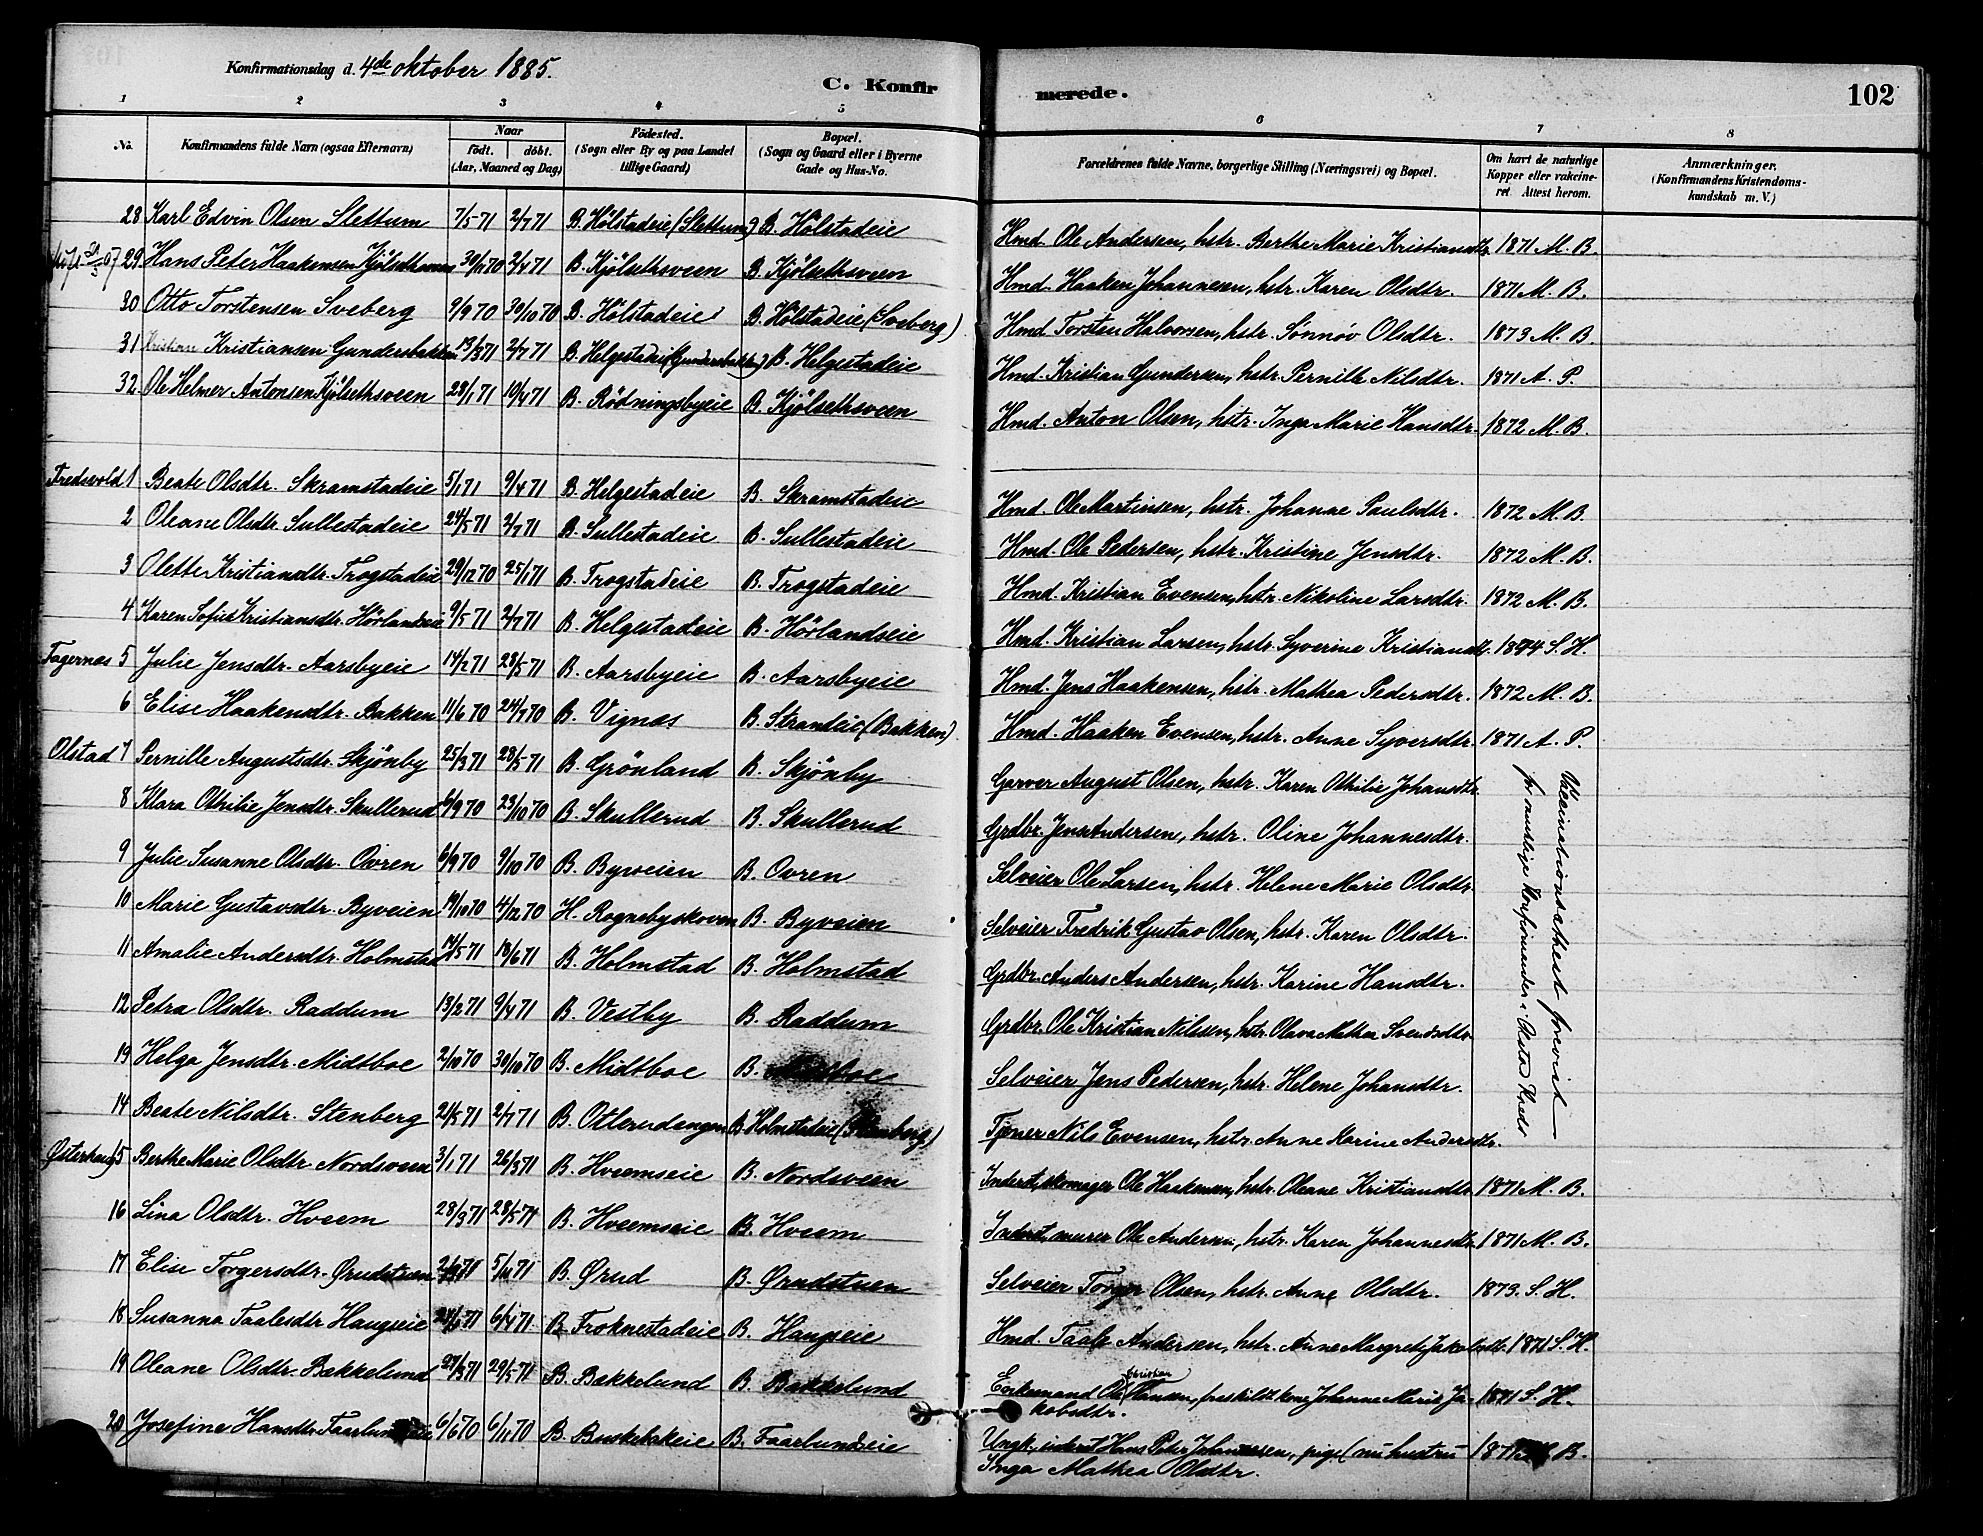 Konfirmationsdag d. 4de oktober 1885.
C. Konfirmerede.
102
1 2 3 4 5 6 7 8
No. Konfirmandens fulde Navn (ogsaa Efternavn) Naar födt. döbt. (Aar, Maaned og Dag) Födested. (Sogn eller By og paa Landet tillige Gaard) Bopæl. (Sogn og Gaard eller i Byerne Gade og Hus-No. Forældrenes fulde Navne, borgerlige Stilling (Næringsvei) og Bopæl. Om havt de naturlige Kopper eller vakcineret. Attest herom. Anmærkninger. (Konfirmandens Kristendomskundskab m. V.)
28 Karl Edvin Olsen Slettum 7/5 71 2/7 71 B. Hölstadeie (Slettum) B. Hölstadeie Hmd. Ole Andersen, hstr. Berthe Marie Kristiansdtr. 1871 M. B.
29 Hans Peter Haakensen Kjölsethsveen 2/4 71 B. Kjölsethsveen B. Kjölsethsveen Hmd. Haaken Johannesen, hstr. Karen Olsdtr. 1871 M. B.
30 Otto Torstensen Sveberg 9/9 70 30/10 70 B. Hölstadeie B. Hölstadeie (Sveberg) Hmd. Torsten Halvorsen, hstr. Sønnøv Olsdtr. 1873 M. B.
31 Kristian Kristiansen Gundersbakken 13/3 71 2/7 71 B. Helgestadeie (Gundersbakken) B. Helgestadeie Hmd. Kristian Gundersen, hstr. Pernille Nilsdtr. 1871 A. P.
32 Ole Helmer Antonsen Kjölsethsveen 28/1 71 10/4 71 B. Rödningsbyeie B. Kjölsethsveen Hmd. Anton Olsen, hstr. Inga Marie Hansdtr. 1872 M. B.
Fredsvold 1 Beate Olsdtr. Skramstadeie 5/1 71 9/4 71 B. Helgestadeie B. Skramstadeie Hmd. Ole Martinsen, hstr. Johanne Paulsdtr. 1872 M. B.
2 Oleane Olsdtr. Sullestadeie 24/5 71 2/7 71 B. Sullestadeie B. Sullestadeie Hmd. Ole Pedersen, hstr. Kristine Jensdtr. 1872 M. B.
3 Olette Kristiansdtr. Trogstadeie 29/12 70 25/1 71 B. Trogstadeie B. Trogstadeie Hmd. Kristian Evensen, hstr. Nikoline Larsdtr. 1872 M. B.
4 Karen Sofie Kristiansdtr. Hörlandseie 9/5 71 2/7 71 B. Helgestadeie B. Hörlandseie Hmd. Kristian Larsen, hstr. Syverine Kristiansdtr. S. H.
Fagernæs 5 Julie Jensdtr. Aarsbyeie 14/2 71 28/5 71 B. Aarsbyeie B. Aarsbyeie Hmd. Jens Haakensen, hstr. Mathea Pedersdtr. 1872 M. B.
6 Elise Haakensdtr. Bakken 11/6 70 24/7 70 B. Vignæs B. Strandeie (Bakken) Hmd. Haaken Evensen, hstr. Anne Syversdtr. 1871 A. P.
Olstad 7 Pernille Augustsdtr. Skjönby 25/3 71 28/5 71 B. Grönland B. Skjönby Garver August Olsen, hstr. Karen Othilie Johansdtr.
8 Klara Othilie Jensdtr. Skullerud 6/9 70 23/10 70 B. Skullerud B. Skullerud Grdbr. Jens Andersen, hstr. Oline Johannesdtr.
9 Julie Susanne Olsdtr. Ovren 6/9 70 9/10 70 B. Byveien B. Ovren Selveier Ole Larsen, hstr. Helene Marie Olsdtr.
10 Marie Gustavsdtr. Byveien 19/10 70 4/12 70 H. Rognebyskoven B. Byveien Selveier Fredrik Gustav Olsen, hstr. Karen Olsdtr.
11 Amalie Andersdtr. Holmstad 14/5 71 18/6 71 B. Holmstad B. Holmstad Grdbr. Anders Andersen, hstr. Karine Hansdtr.
12 Petra Olsdtr. Raddum 13/2 71 9/4 71 B. Vestby B. Raddum Grdbr. Ole Kristian Nilssen, hstr. Olava Mathea Svendsdtr.
13 Helga Jensdtr. Midtboe 2/10 70 30/10 70 B. Midtboe B. Midtboe Selveier Jens Pedersen, hstr. Helene Johansdtr.
14 Beate Nilsdtr. Stenberg 21/5 71 2/7 71 B. Otterudengen B. Holmstadeie (Stenberg) Tjener Nils Evensen, hstr. Anne Karine Andersdtr.
Vaccinationsattest forevist for samtlige Konfirmander i Olstad Kreds
Østerhaug 15 Berthe Marie Olsdtr. Nordsveen 3/1 71 26/3 71 B. Hveemseie B. Nordsveen Inderst, skomager Ole Haakensen, hstr. Oleane Kristiansdtr. 1871 M. B.
16 Lina Olsdtr. Hveem 28/3 71 28/5 71 B. Hveemseie B. Hveem Inderst, murer Ole Andersen, hstr. Karen Johannesdtr. 1871 M. B.
17 Elise Torgersdtr. Ørudstuen B. Ørud B. Ørudstuen Selveier Torger Olsen, hstr. Anne Olsdtr. 1873. S. H.
18 Susanna Taalesdtr. Haugseie 6/4 71 B. Troknestadeie B. Haugseie Hmd. Taale Andersen, hstr. Anne Margrete Jakobsdtr. 1871 S. H.
19 Oleane Olsdtr. Bækkelund 27/3 71 29/5 71 B. Bækkelund B. Bækkelund Enkemand Ole Christian Hansen, fraskilt kone Johanne Marie Jakobsdtr. 1871 S. H.
20 Josefine Hansdtr. Faarlundseie 6/6 70 6/11 70 B. Buskekakeie B. Faarlundseie Ungk. inderst Hans Peter Johannessen, pige (nu hustru Inga Mathea Olsdtr. M. B.